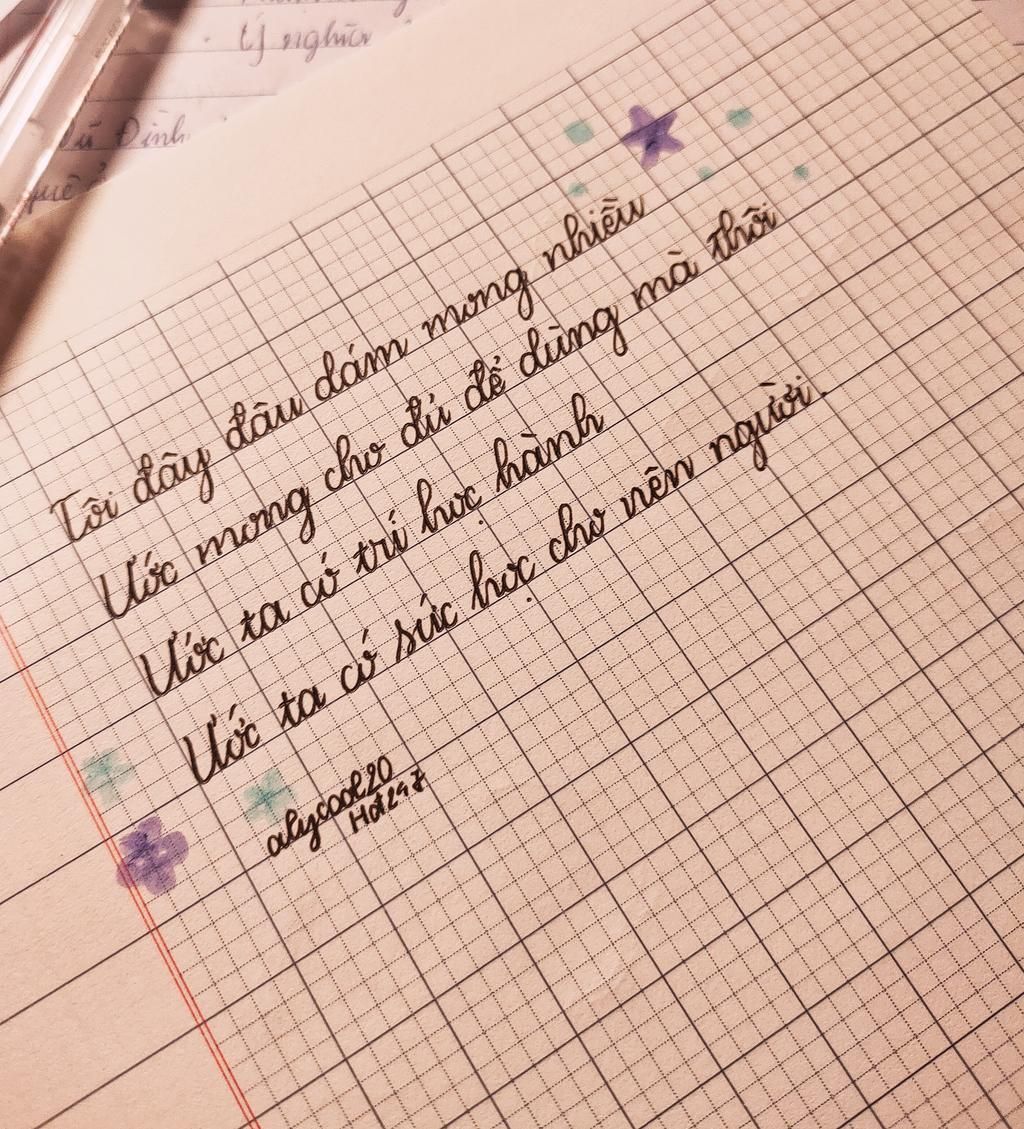 Ý nghĩa
Đình
quê
Tôi đây đâu dám mong nhiều
Ước mong cho đủ để dùng mà thôi
Ước ta có trí học hành
Ước ta có sức học cho nên người.
alycool20
Hot247